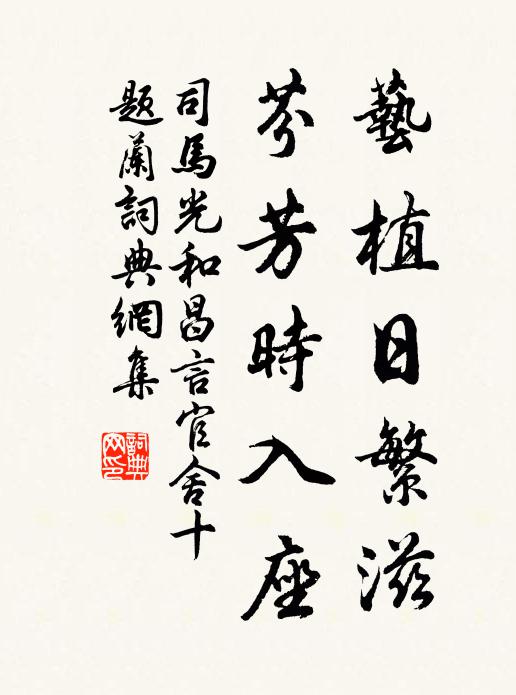 藝植日繁滋
芬芳時入座
司馬光和昌言官舍十
題蘭詞典網集
詞典网印